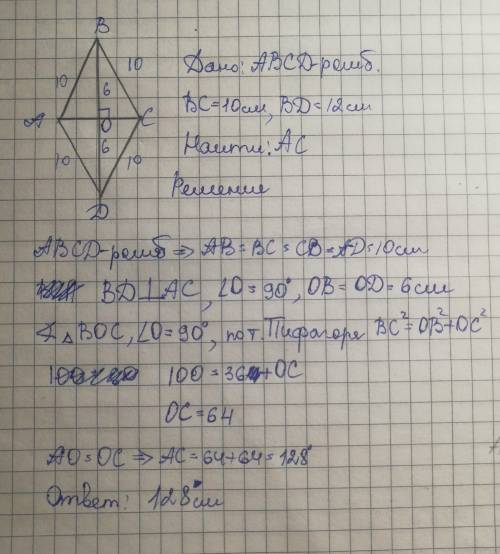 B
10 10
6
A O C
6
10 10
D
Дано: ABCD-ромб.
BC=10см, BD=12см
Найти: AC
Решение
ABCD-ромб ⇒ AB=BC=CB=AD=10см
BD⊥AC, ∠O=90°, OB=OD=6см
∢ △BOC, ∠O=90°, по т. Пифагора BC²=OB²+OC²
100=36+OC
OC=64
AO=OC ⇒ AC=64+64=128
Ответ: 128см